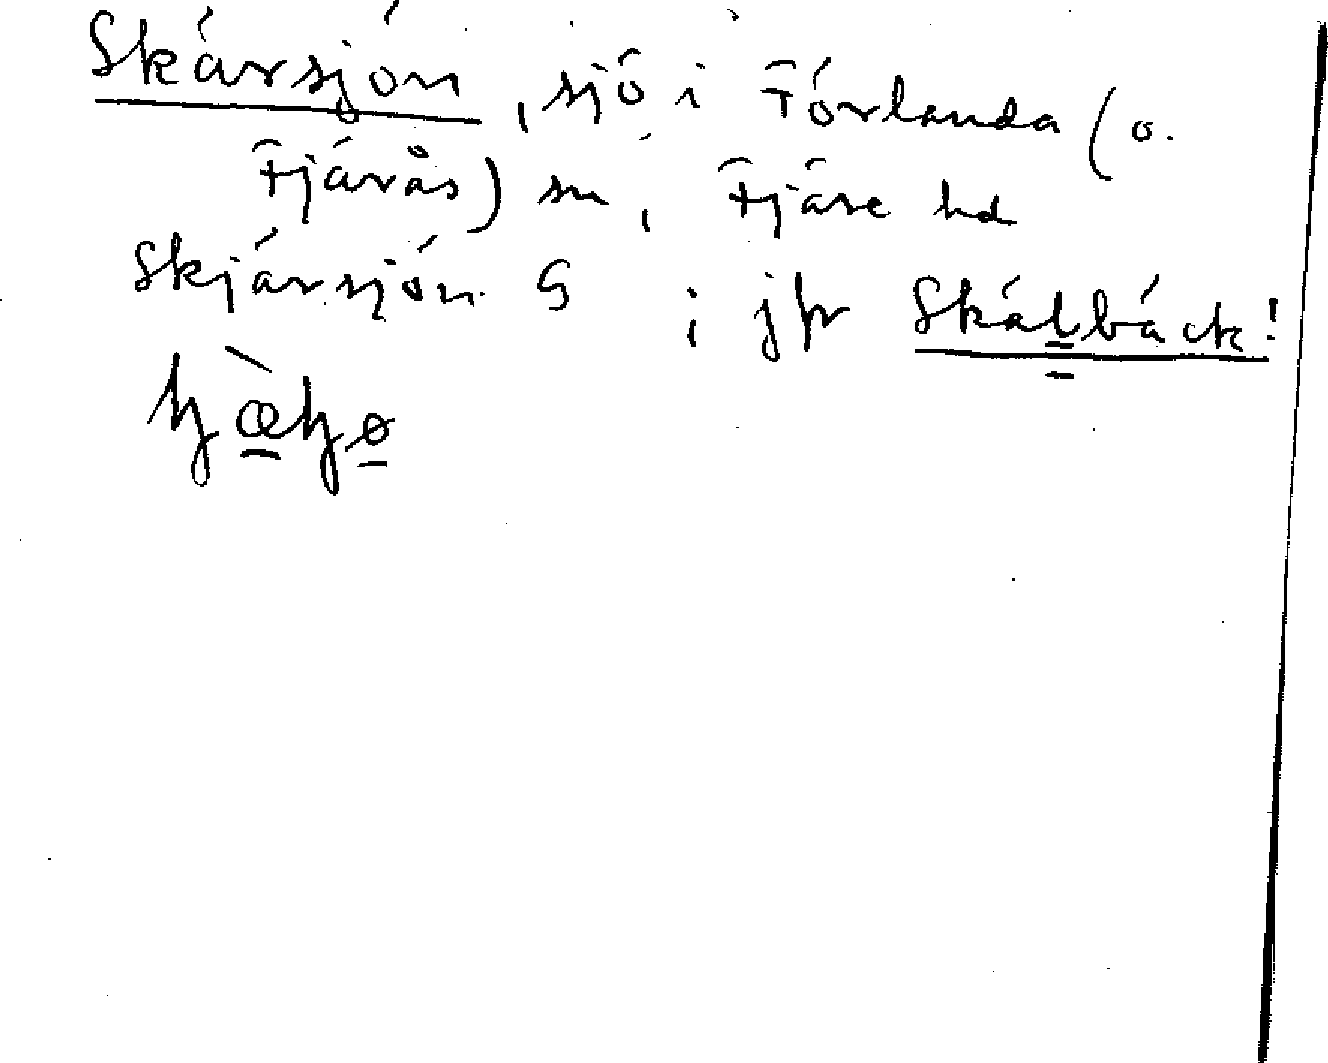 Skärsjön, sjö i Förlanda (o.
Fjärås) sn, Fjäre hd
Skjärsjön G ; jfr Skälbäck!